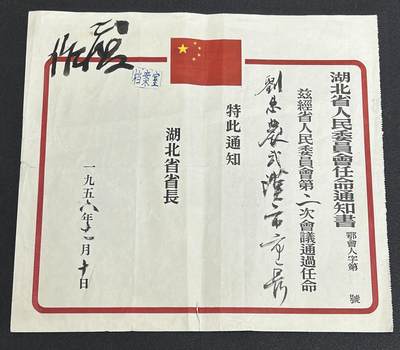 湖北省人民委員會任命通知書
鄂會人字第 號
茲經省人民委員會第二次會議通過任命
劉惠農武漢市長
特此通知
湖北省省長
一九五六年月十日
档案室
作廢